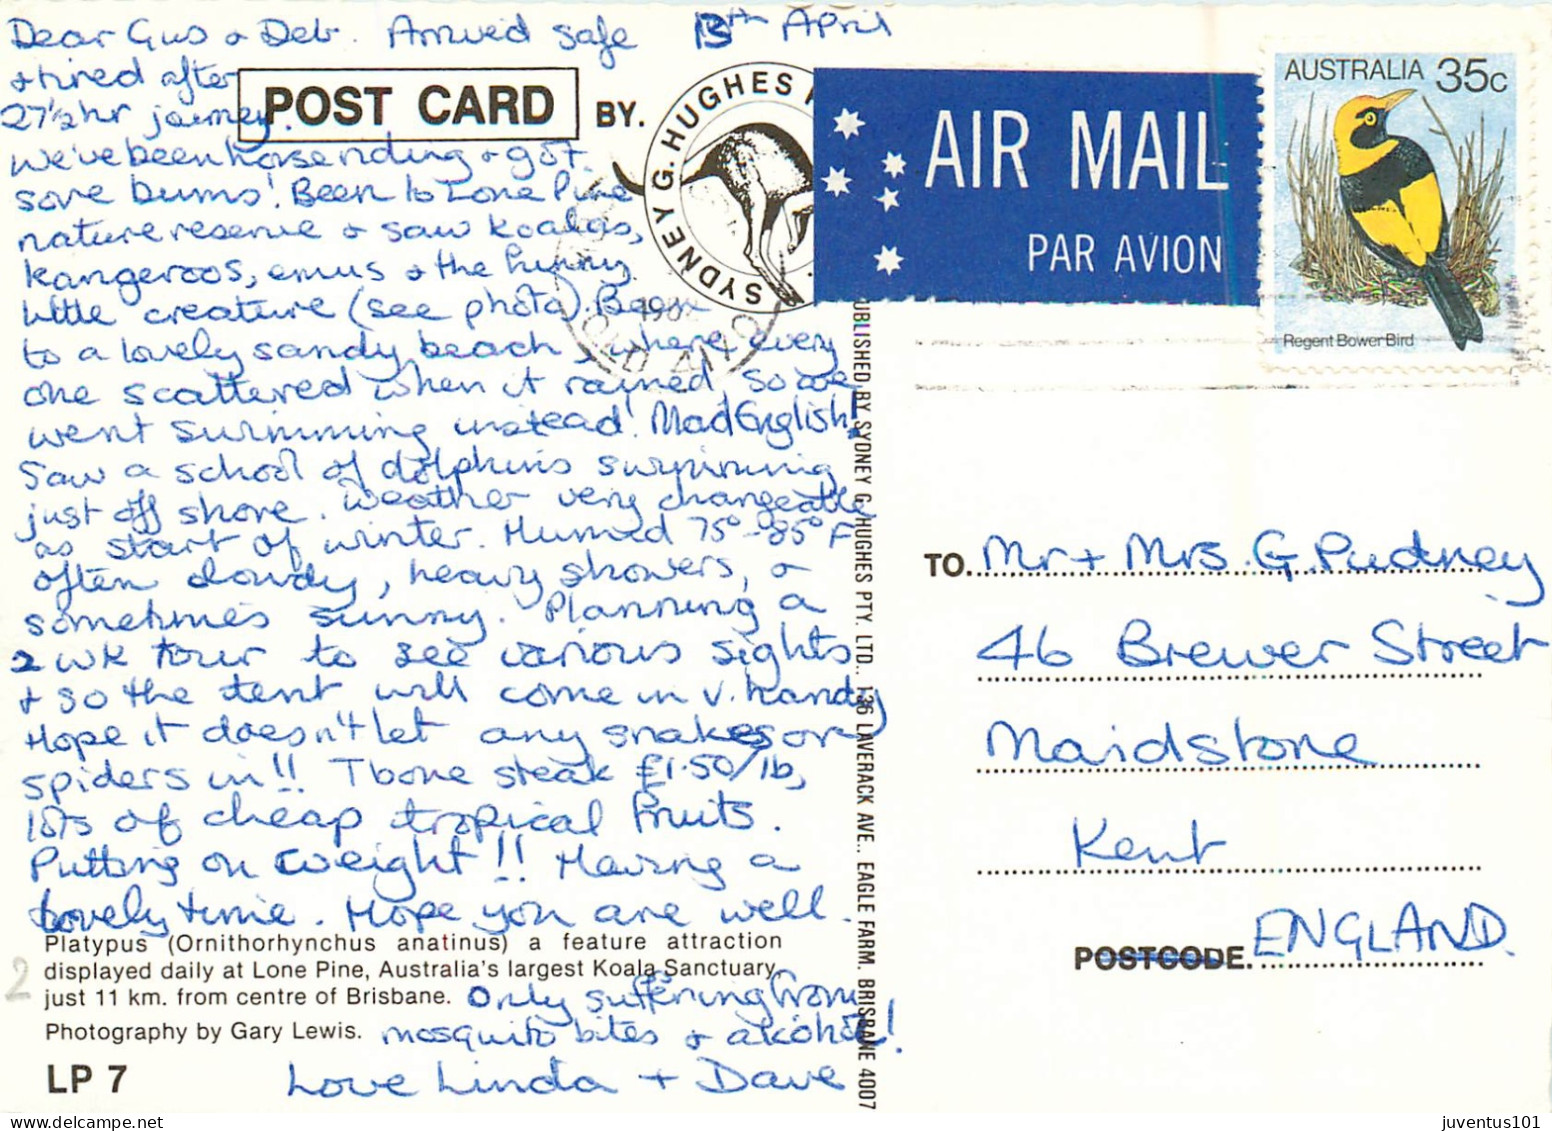 Dear Gus & Deb. Arrived safe 13th April
& tired after
27½hr journey.
We've been horse riding & got
sore bums! Been to Lone Pine
nature reserve & saw koalas,
kangeroos, emus & the funny
little creature (see photo). Been
to a lovely sandy beach, where every
one scattered when it rained so we
went swimming instead! Mad English!
Saw a school of dolphins swimming
just off shore. Weather very changeable
as start of winter. Humid 75°-85°F
often cloudy, heavy showers, &
sometimes sunny. Planning a
2 wk tour to see various sights
& so the tent will come in v. handy
Hope it doesn't let any snakes or
spiders in!! Tbone steak £1.50/lb,
lots of cheap tropical fruits.
Putting on weight!! Having a
lovely time. Hope you are well.
Only suffering from
mosquito bites & alcohol!
Love Linda + Dave
POST CARD BY.
SYDNEY G. HUGHES
AIR MAIL
PAR AVION
AUSTRALIA 35c
Regent Bower Bird
198
QLD AUST
PUBLISHED BY SYDNEY G. HUGHES PTY. LTD., 136 LAVERACK AVE., EAGLE FARM. BRISBANE 4007
TO. Mr + Mrs. G. Pudney
46 Brewer Street
Maidstone
Kent
POSTCODE. ENGLAND.
Platypus (Ornithorhynchus anatinus) a feature attraction
displayed daily at Lone Pine, Australia's largest Koala Sanctuary,
just 11 km. from centre of Brisbane.
Photography by Gary Lewis.
LP 7
2
juventus101